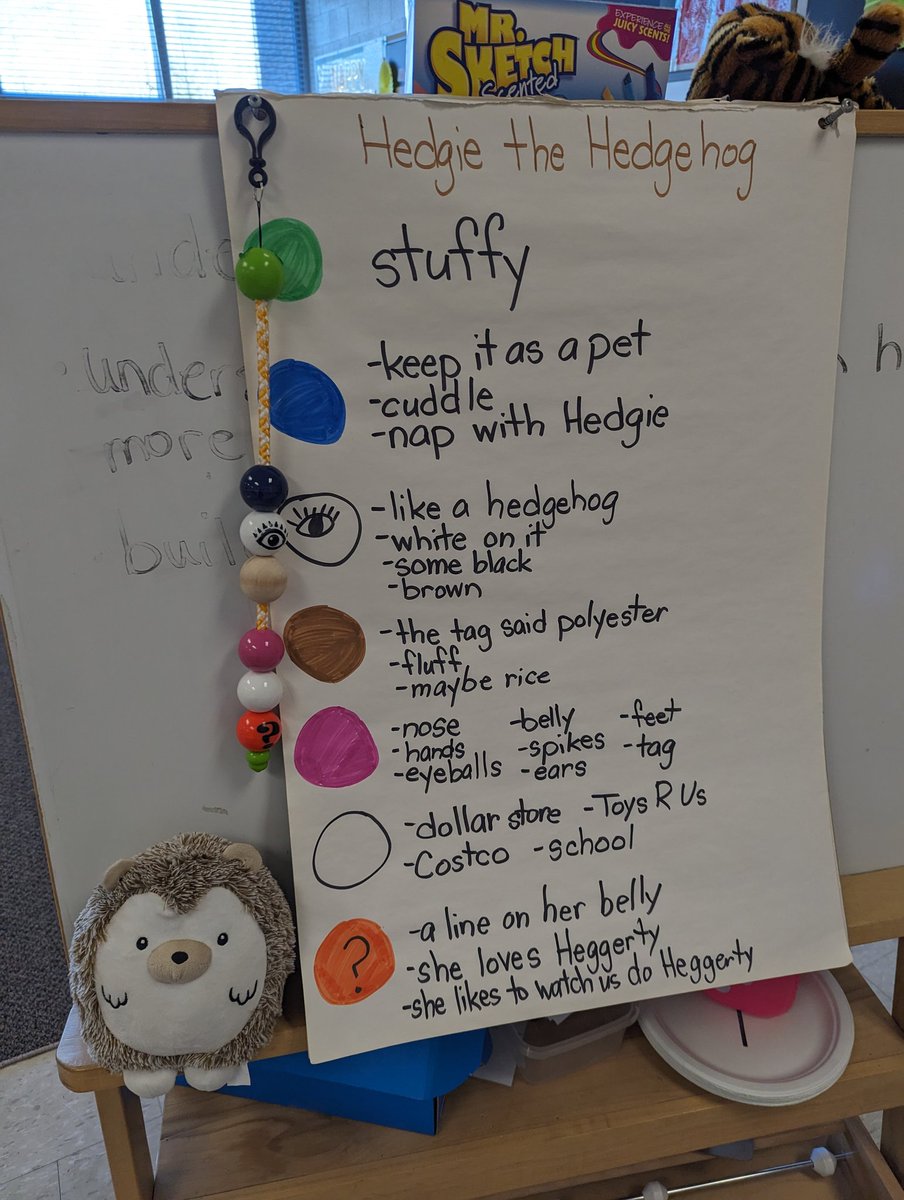 MR.
SKETCH
Scented
EXPERIENCE
JUICY SCENTS!
Hedgie the Hedgehog
stuffy
-keep it as a pet
-cuddle
-nap with Hedgie
-like a hedgehog
-white on it
-some black
-brown
-the tag said polyester
-fluff
-maybe rice
-nose -belly -feet
-hands -spikes -tag
-eyeballs -ears
-dollar store -Toys R Us
-Costco -school
?
-a line on her belly
-she loves Heggerty
-she likes to watch us do Heggerty
?
under
more
buil